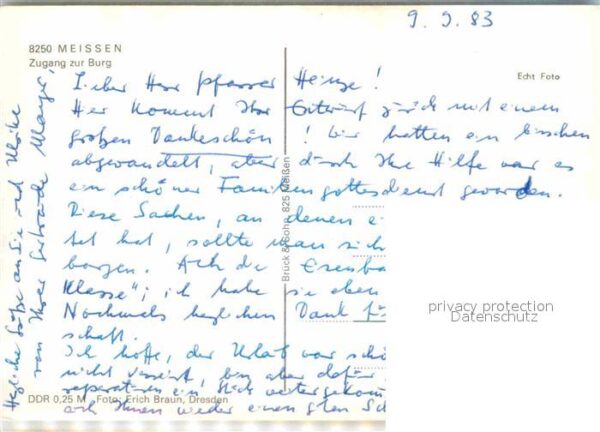 9. 9. 83
8250 MEISSEN
Zugang zur Burg
Echt Foto
Lieber Herr Pfarrer Heinze!
Hier kommt Ihr Entwurf zurück mit einem
großen Dankeschön! Wir hatten ein bisschen
abgewandelt, aber durch Ihre Hilfe war es
ein schöner Familiengottesdienst geworden.
Diese Sachen, an denen
tet hat, sollte man sich
borgen. Ach die
Klasse"; ich habe sie eben
Nochmals herzlichen Dank für
schaft.
Ich hoffe, der Urlaub war
nicht verreist, bin aber dafür
reparaturen ein Stück weitergekommen
ach Ihnen wieder einen guten
Herzliche Grüße an Sie und Ulrike
von Ihrer Gertraude
Brück & Sohn, 825 Meißen
DDR 0,25 M Foto: Erich Braun, Dresden
privacy protection
Datenschutz